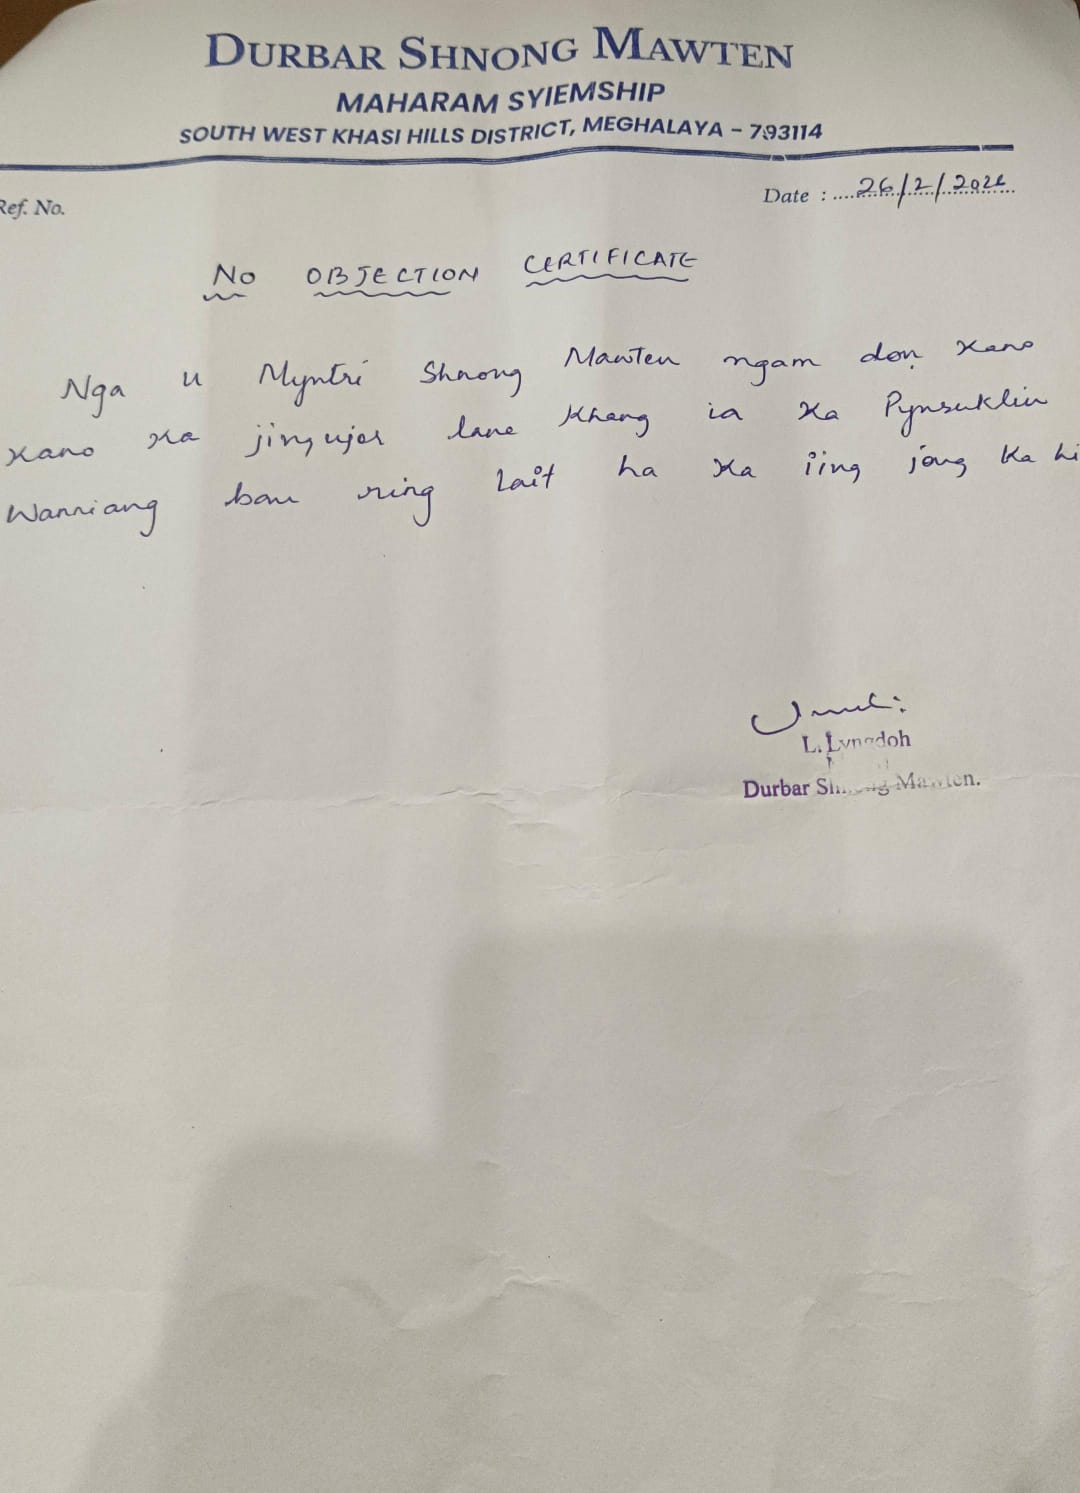 DURBAR SHNONG MAWTEN
MAHARAM SYIEMSHIP
SOUTH WEST KHASI HILLS DISTRICT, MEGHALAYA – 793114
Ref. No.
Date : 26/2/2026
NO OBJECTION CERTIFICATE
Nga u Myntri Shnong Mawten ngam don Kano
Kano Ka jingujor lane Khang ia Ka Pynsuklin
Wanniang ban ring Lait ha Ka iing jong Ka hi
L. Lyngdoh
Durbar Shnong Mawten.